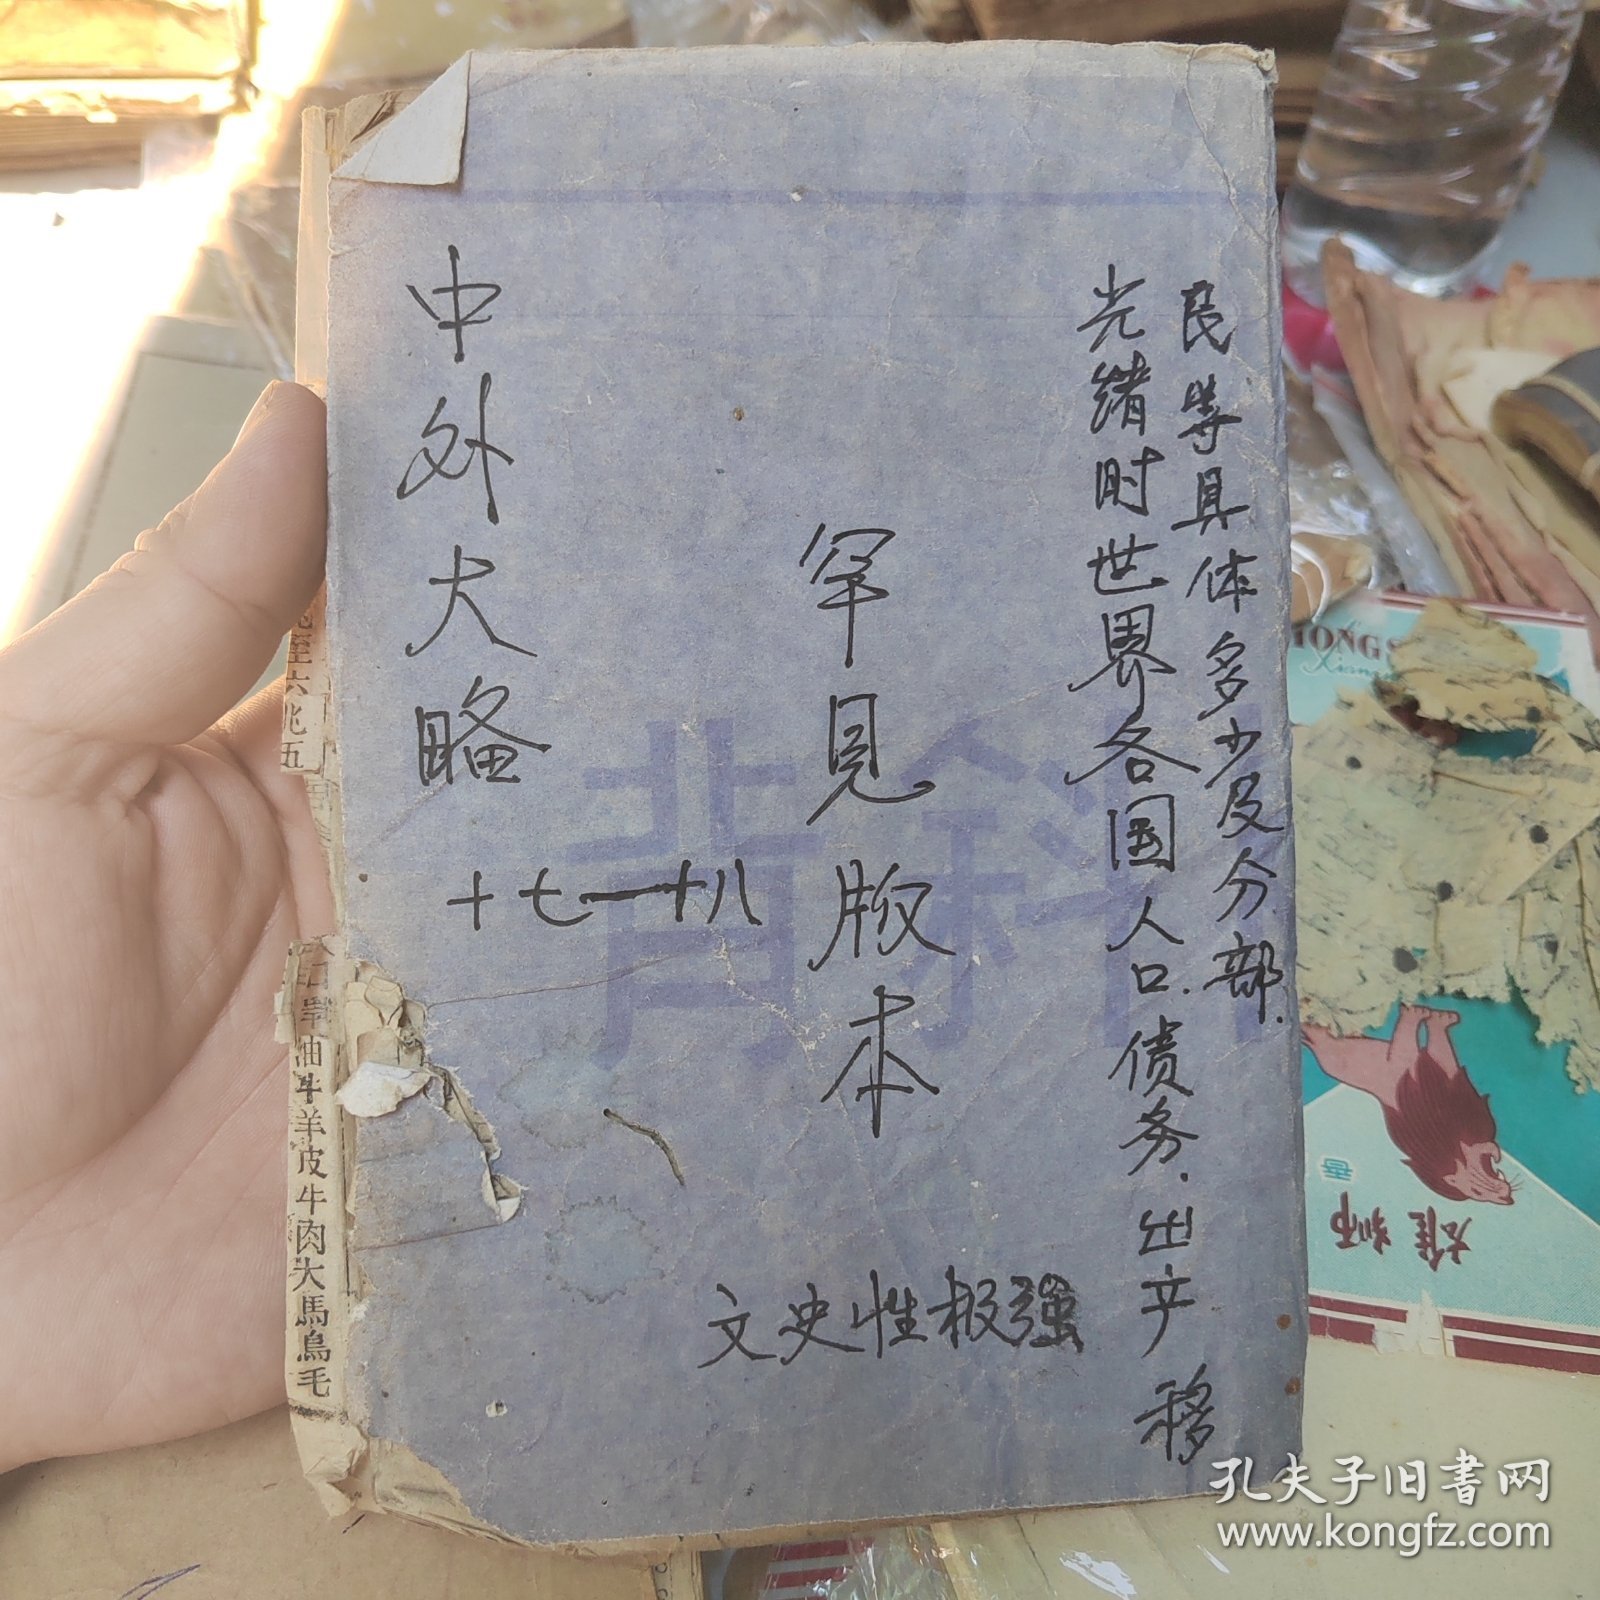 中外大略
十七一十八
罕见版本
光绪时世界各国人口.债务.出产移
民等具体多少及分部.
文史性极强
背 科
至六兆五
口羊油牛羊皮牛肉大馬鳥毛
雄獅
香
孔夫子旧書网
www.kongfz.com